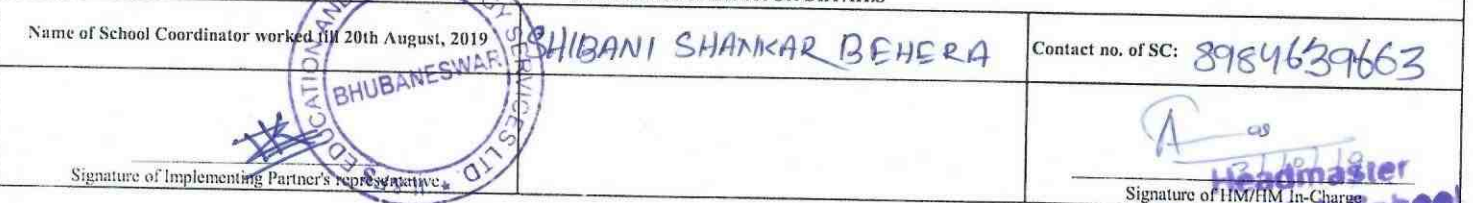 Name of School Coordinator worked till 20th August, 2019
SHIBANI SHANKAR BEHERA
Contact no. of SC: 8984639663
BHUBANESWAR
SERVICES LTD.
Signature of Implementing Partner's representative
Headmaster
Signature of HM/HM In-Charge